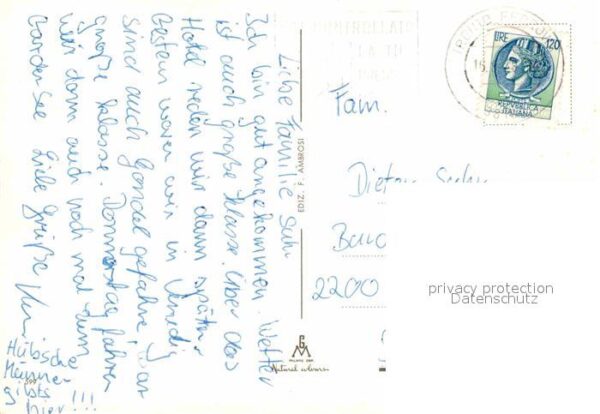 Liebe Familie
Ich bin gut angekommen. Wetter
ist auch große Klasse. Über das
Hotel reden wir dann später.
Gestern waren wir in Venedig
sind auch Gondel gefahren, war
große Klasse. Donnerstag fahren
wir dann auch noch mal zum
Gardasee Liebe Grüße
Hübsche
Männer
gibts
hier!!!
599
EDIZ. F. AMBROSI
GM
MILANO
Natural colours
LIRE 120
REPUBBLICA
ITALIANA
Fam.
Dieter
2200
privacy protection
Datenschutz